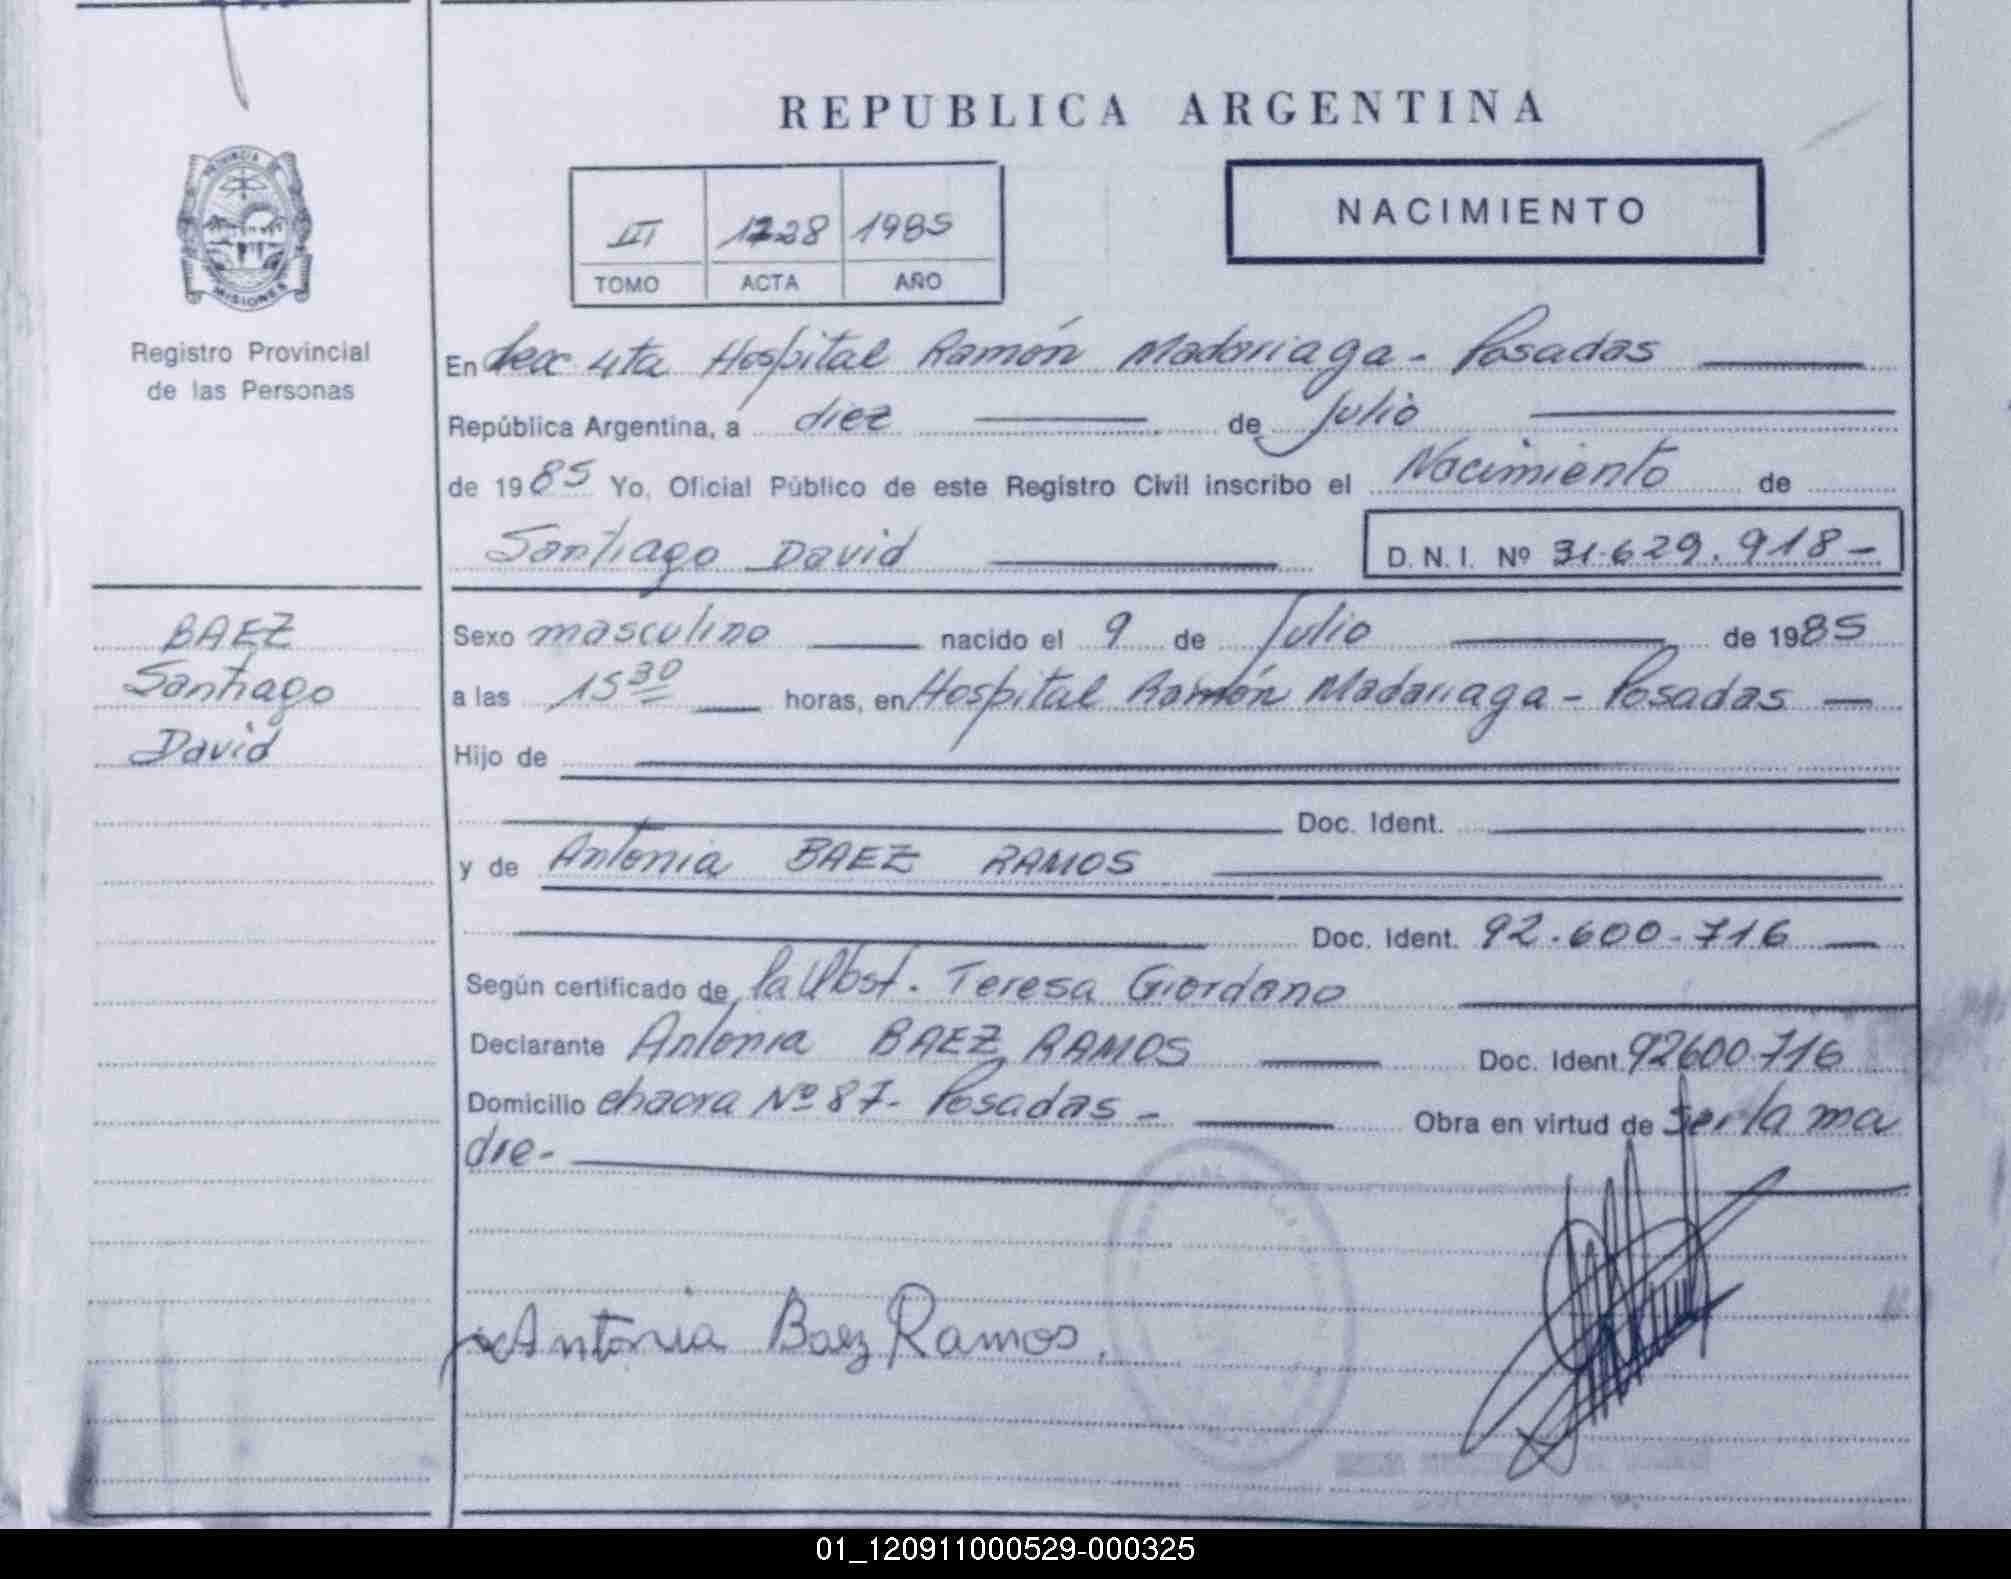 REPUBLICA ARGENTINA
PROVINCIA DE
MISIONES
Registro Provincial
de las Personas
III 1728 1985
TOMO ACTA AÑO
NACIMIENTO
En Sex 4ta Hospital Ramón Madariaga - Posadas
República Argentina, a diez de Julio
de 1985 Yo, Oficial Público de este Registro Civil inscribo el Nacimiento de
Santiago David D. N. I. Nº 31.629.918-
BAEZ
Santiago
David
Sexo masculino nacido el 9 de Julio de 1985
a las 15 30 horas, en Hospital Ramón Madariaga - Posadas
Hijo de
Doc. Ident.
y de Antonia BAEZ RAMOS
Doc. Ident. 92.600.716
Según certificado de la Obst. Teresa Giordano
Declarante Antonia BAEZ RAMOS Doc. Ident. 92600.716
Domicilio chacra Nº 87- Posadas - Obra en virtud de ser la ma
dre-
Antonia Baez Ramos.
01_120911000529-000325